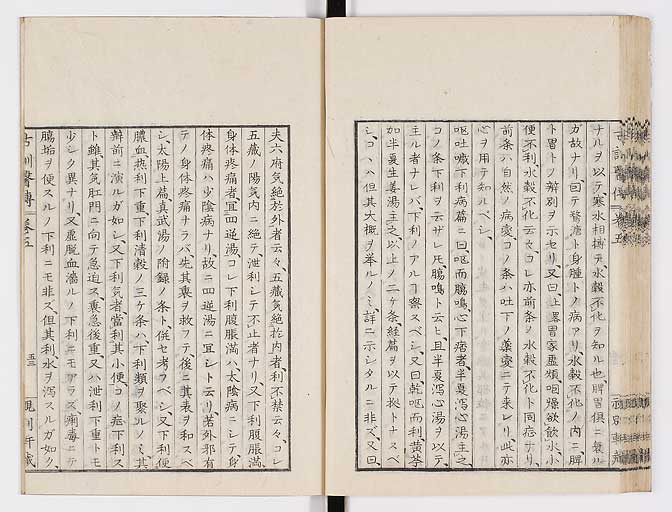 ナルヲ以テ寒水相搏テ水穀不化ヲ知ル也脾胃俱ニ
ガ故ナリ、回テ鶩溏ト身腫トノ病アリ、水穀不化ノ内ニ、脾
ト胃トノ辨別ヲ示セリ、又曰上畧冒家虛煩咽燥欲飲水小
便不利、水穀不化云々、コレ亦前条ノ水穀不化ト同症ナリ、
前条ハ自然ノ病変コノ条ハ吐下ノ藥変ニテ来レリ、此亦
心ヲ用テ知ルベシ、
嘔吐噦下利病篇ニ曰、嘔而腸鳴、心下痞者、半夏瀉心湯主之
コノ条下利ヲ云ザレ𪜈腸鳴ト云ヒ且半夏瀉心湯ヲ以テ
主ル者ナレバ、下利ノアル了察スベシ、又曰、乾嘔而利、黄芩
加半夏生姜湯主之、以上ノ二ケ条経篇ヲ以テ挨トナスベ
シ、コヽハ但其大概ヲ挙ルノミ、詳ニ示シタルニ非ズ、又曰、
夫六府気絶於外者云々、五藏気絶於内者、利不禁云々、コレ
五藏ノ陽気内ニ絶テ、泄利シテ不止者ナリ、又下利腹脹満
身体疼痛者、宜四逆湯、コレ下利腹脹満ハ太陰病ニシテ、身
体疼痛ハ少陰病ナリ、故ニ四逆湯ニ宜シト云リ、若外邪有
テノ身体疼痛ナラバ、先其裏ヲ救フテ後ニ其表ヲ和スベ
シ、太陽上篇、真武湯ノ附録ノ条ト、併セ考フベシ、又下利便
膿血、熱利下重、下利清穀ノ三ケ条ハ、下利類ヲ聚ルノミ、其
辨前ニ演ルガ如シ、又下利気者當利其小便、コノ症下利ス
ト雖、其気肛門ニ向テ急迫ス、裏急後重、又ハ泄利下重トモ
少シク異ナリ、又虛脱血瀉ルノ下利ニモアラズ、痢毒ニテ
腸垢ヲ便スルノ下利ニモ非ス、但其利水ヲ瀉スルガ如ク、
古訓醫傳 巻五
五三